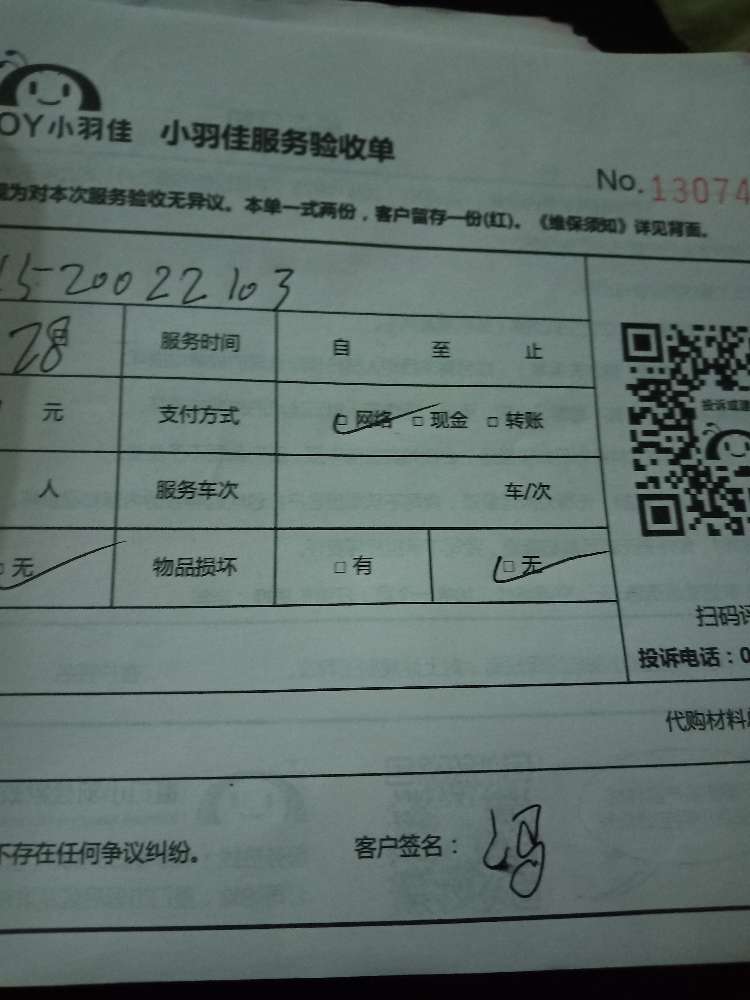 OY小羽佳 小羽佳服务验收单
No.13074
视为对本次服务验收无异议。本单一式两份，客户留存一份(红)。《维保须知》详见背面。
15-20022103
28日 服务时间 自 至 止
元 支付方式 □ 网络 □ 现金 □ 转账
投诉或建
人 服务车次 车/次
□ 无 物品损坏 □ 有 □ 无
扫码评
投诉电话：0
代购材料
不存在任何争议纠纷。 客户签名：